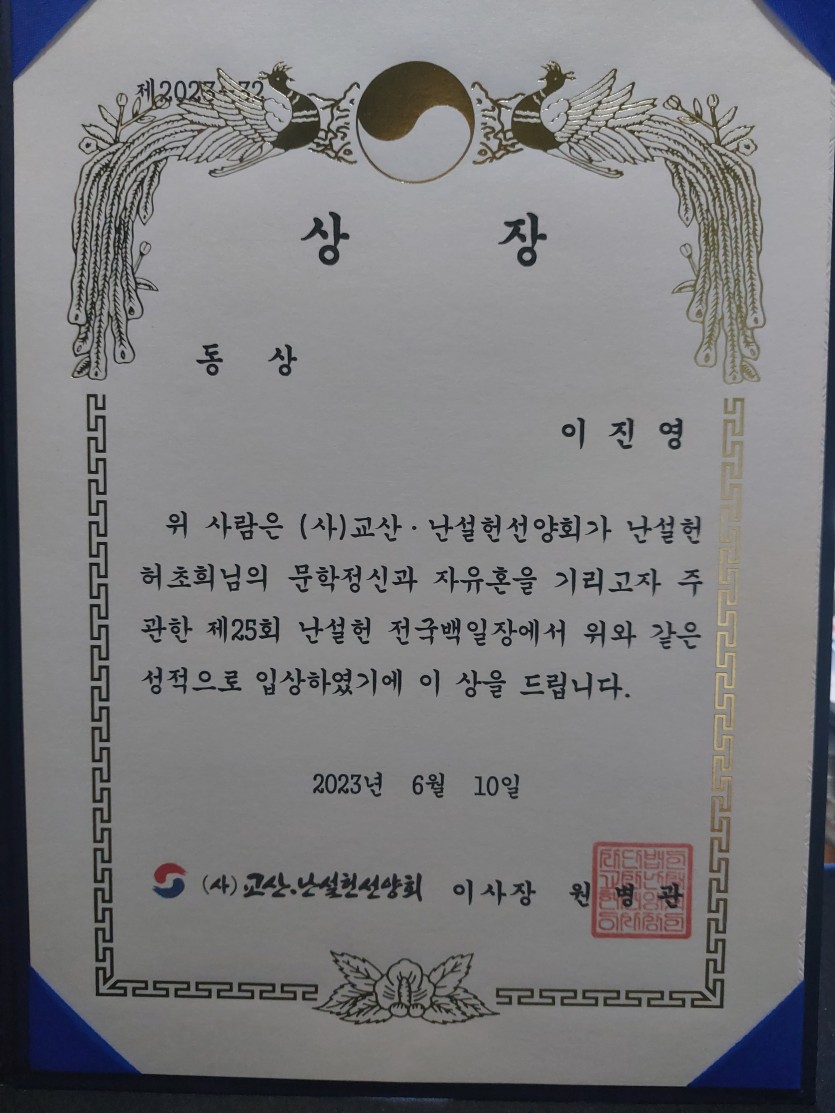 제2023-32
상 장
동 상
이 진 영
위 사람은 (사)교산·난설헌선양회가 난설헌
허초희님의 문학정신과 자유혼을 기리고자 주
관한 제25회 난설헌 전국백일장에서 위와 같은
성적으로 입상하였기에 이 상을 드립니다.
2023년 6월 10일
(사)교산·난설헌선양회 이사장 원 병 관